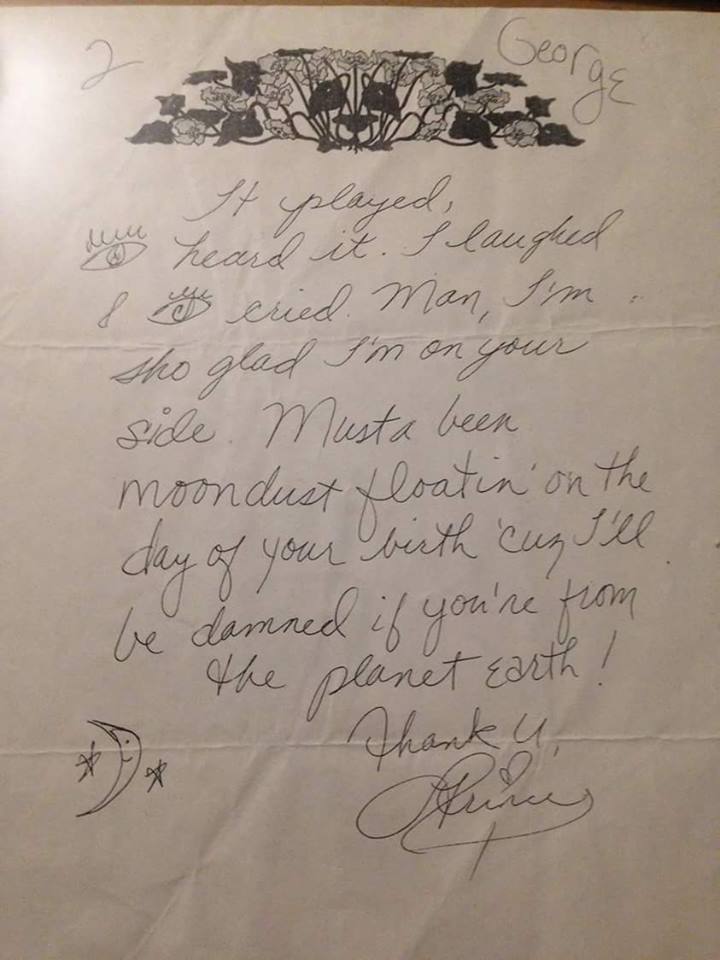 2 George
It played,
heard it. I laughed
& cried. Man, I'm
sho glad I'm on your
side. Musta been
moondust floatin' on the
day of your birth 'cuz I'll
be damned if you're from
the planet Earth!
Thank U,
Prince